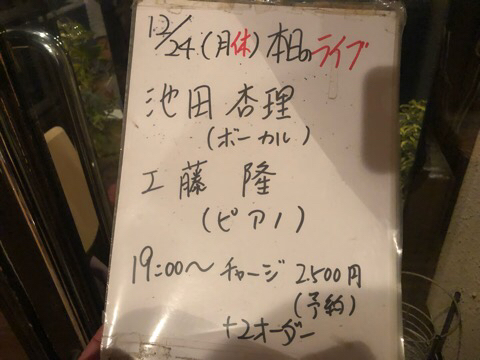 12/24.(月休)本日のライブ
池田杏理
(ボーカル)
工藤 隆
(ピアノ)
19:00〜チャージ 2.500円
(予約)
+2オーダー